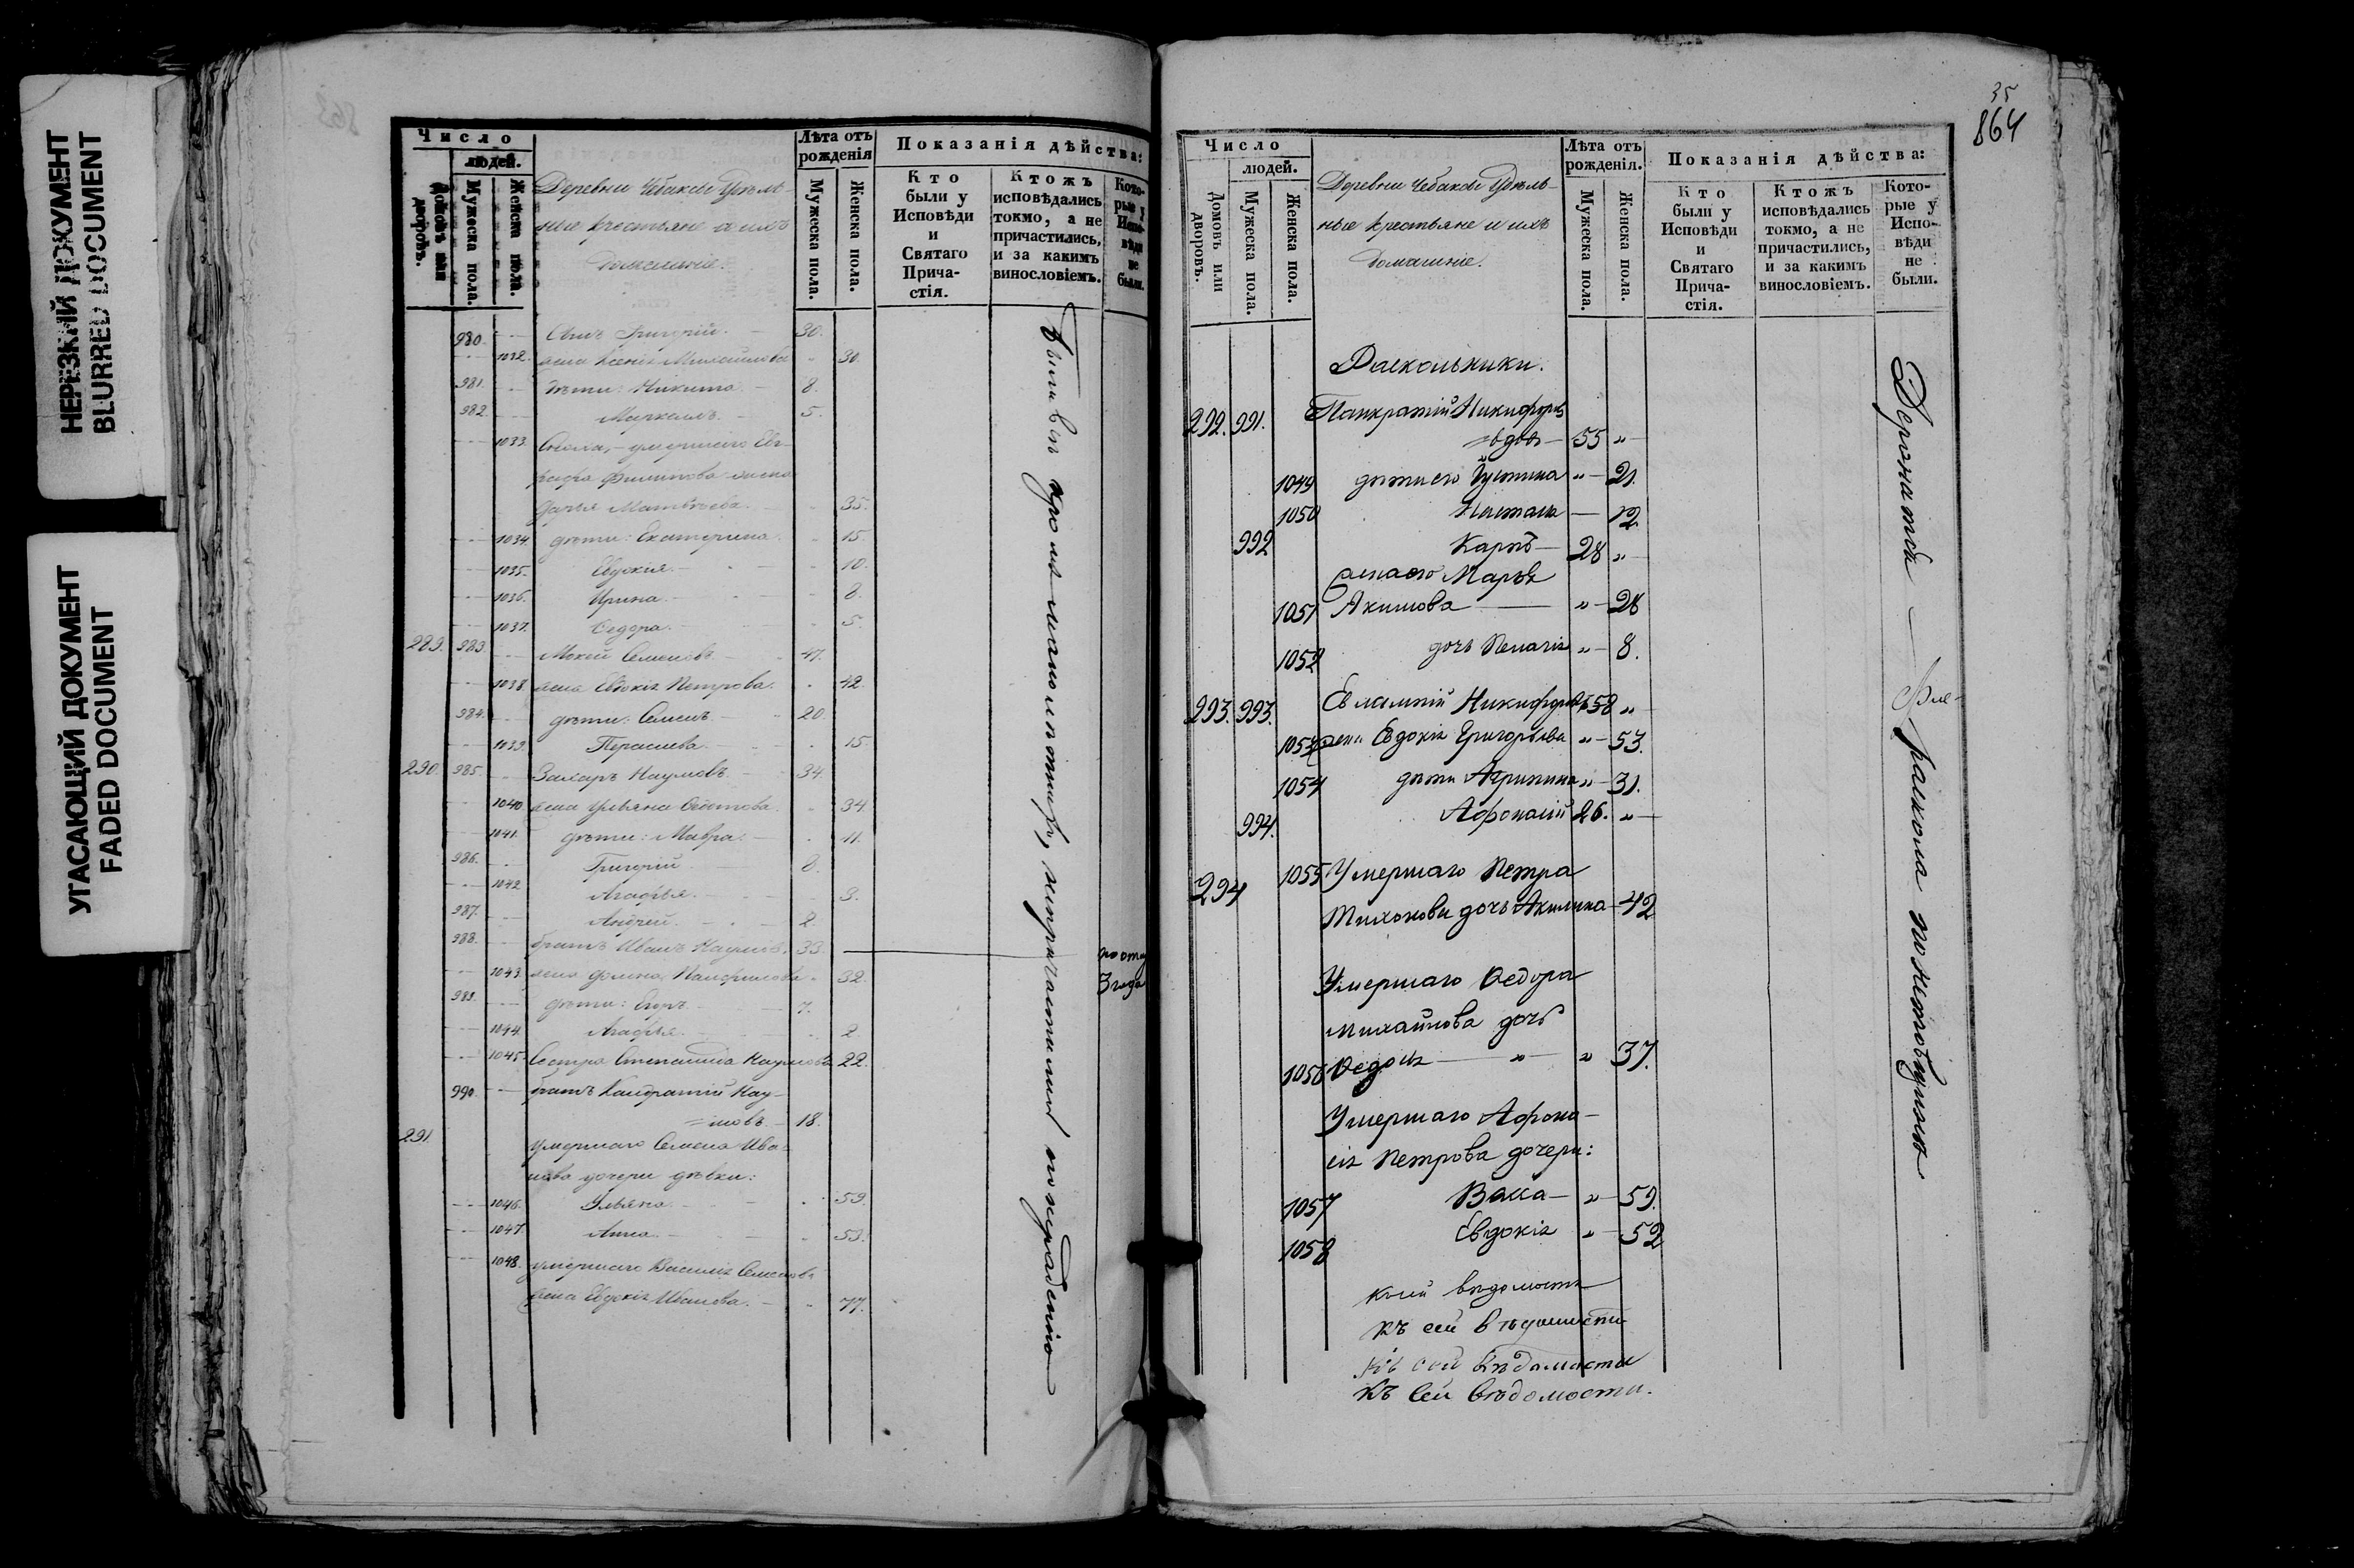 НЕРЕЗКИЙ ДОКУМЕНТ
BLURRED DOCUMENT
УГАСАЮЩИЙ ДОКУМЕНТ
FADED DOCUMENT
Число
людей.
Домовъ или дворовъ.
Мужеска пола.
Женска пола.
Деревни Чебаксы Удѣль-
ные крестьяне и ихъ
домашніе.
Лѣта отъ рожденія
Мужеска пола.
Женска пола.
Показанія дѣйства:
Кто были у Исповѣди и Святаго Прича-стія.
Ктожъ исповѣдались токмо, а не причастились, и за какимъ винословіемъ.
Кото-рые у Испо-вѣди не были.
980. Сынъ Григорій. 30.
1032. жена Ксенія Михайлова 30.
981. дѣти: Никита 8.
982. Маркеллъ. 5.
1033. Сноха, умершаго Ев-
графа Филипова жена
Дарья Матвѣева. 35.
1034. дѣти: Екатерина 15.
1035. Евдокія. 10.
1036. Ирина. 8.
1037. Ѳедора. 5.
289. 983. Мокей Семеновъ 47.
1038. жена Евдокія Петрова. 42.
984. дѣти: Семенъ 20
1039. 15.
290. 985. Захаръ Наумовъ. 34.
1040 жена Ульяна 34
1041. дѣти: Мавра. 11.
986. Григорій 8.
1042 Агафья. 3.
987. Андрей. 2.
988. братъ Иванъ Наумовъ. 33. по отлу
1043. жена Панфилова 32. 3 года
989. дѣти: Егоръ 7.
1044. Агафья. 2
1045. Сестра Степанида Наумова 22.
990. братъ Кандратій Нау-
=мовъ. 18.
291. умершаго Семена Ива-
нова дочери дѣвки:
1046. Ульяна. 59.
1047. Анна. 53.
1048. умершаго Василія Семенова
жена Евдокія Иванова. 77.
Были въ кромѣ малолѣтнихъ, непричастились по нерадѣнію
35
864
Число
людей.
Домовъ или дворовъ.
Мужеска пола.
Женска пола.
Деревни Чебаксы Удѣль-
ные крестьяне и ихъ
домашніе.
Лѣта отъ рожденія.
Мужеска пола.
Женска пола.
Показанія дѣйства:
Кто были у Исповѣди и Святаго Прича-стія.
Ктожъ исповѣдались токмо, а не причастились, и за какимъ винословіемъ.
Кото-рые у Испо-вѣди не были.
Раскольники.
292. 991. Панкратій Никифоровъ
вдовъ 55 "
1049 дѣти его Устина " 21.
1050 12.
992 Карпъ 28 "
жена его Марья
1051 Акимова " 28
1052 дочь Пелагія " 8.
293. 993. Евлампій Никифоровъ 58 "
1053 жена Евдокія Григорьева " 53.
1054 дѣти Агрипина " 31.
994. Афонасій 26. "
294 1055 Умершаго Петра
Тихонова дочь Акилина 42
Умершаго Ѳедора
Михайлова дочь
1056 " " 37.
Умершаго Афона-
сія Петрова дочери:
1057 Васса " 59.
1058 Евдокія " 52
къ сей вѣдомости
къ сей вѣдомости
Къ сей вѣдомости.
раскола